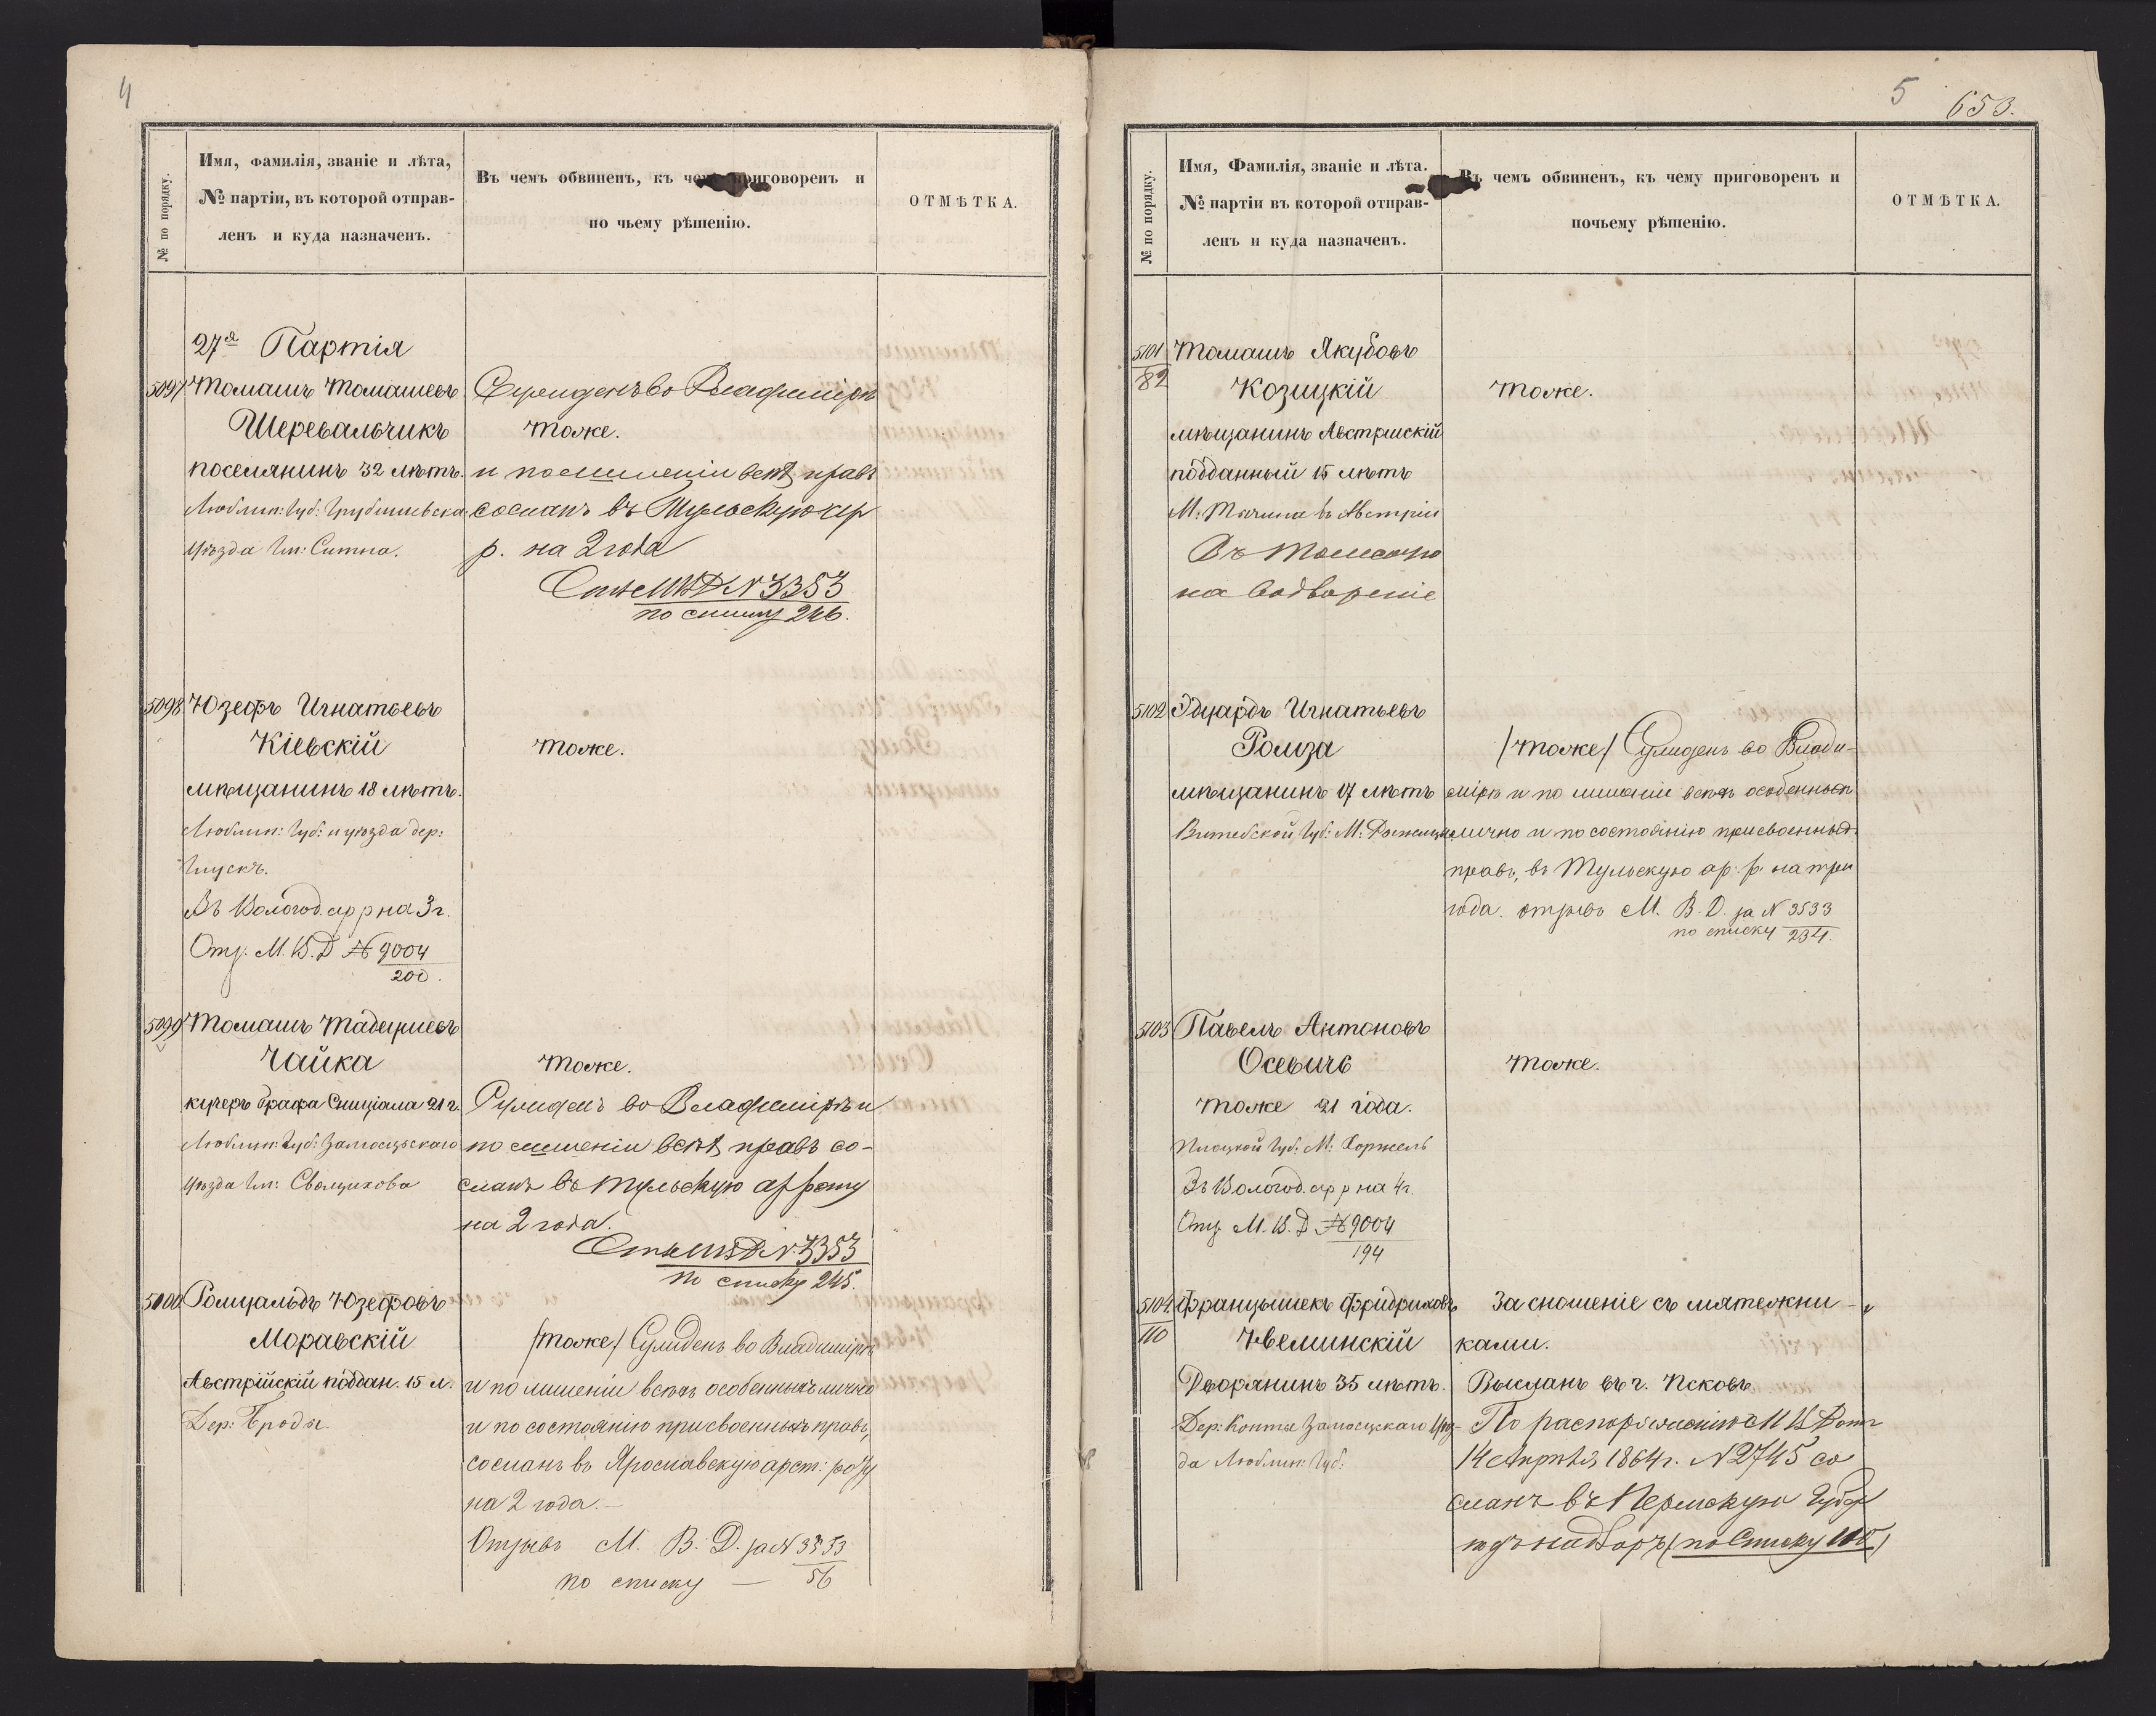 4
№ по порядку.
Имя, фамилія, званіе и лѣта,
№ партіи, въ которой отправ-
ленъ и куда назначенъ.
Въ чемъ обвиненъ, къ чему приговоренъ и
по чьему рѣшенію.
ОТМѢТКА.
27я Партія
5097
Томашъ Томашевъ
Шеревальчикъ
поселянинъ 32 лѣтъ.
Люблин: Губ:
уѣзда Гм: Ситно.
Сужденъ во Владимірѣ
тоже.
и по лишеніи всѣхъ правъ
сосланъ въ Тульскую ар
р. на 2 года
Отз МВД № 3353
по списку 246.
5098
Юзефъ Игнатьевъ
Кіевскій
мѣщанинъ 18 лѣтъ.
Люблин: Губ: и уѣзда дер:
Глускъ.
Въ Вологод. ар р на 3 г.
Отз. М. В. Д № 9004
200.
тоже.
5099
Томашъ Тадеушевъ
Чайка
кучеръ Графа 21 г.
Люблин: Губ: Замосцьскаго
уѣзда Гм:
тоже.
Сужденъ во Владимірѣ и
по лишеніи всѣхъ правъ со-
сланъ въ Тульскую ар роту
на 2 года.
Отз МВД № 3353
по списку 245.
5100
Ромуальдъ Юзефовъ
Моравскій
Австрійскій поддан. 15 л.
Дер: Броды.
/тоже/ Сужденъ во Владимірѣ
и по лишеніи всѣхъ особенныхъ лично
и по состоянію присвоенныхъ правъ,
сосланъ въ Ярославскую арест: роту
на 2 года.—
Отзывъ М. В. Д. за № 3353
по списку — 56
5
653.
№ по порядку.
Имя, Фамилія, званіе и лѣта.
№ партіи въ которой отправ-
ленъ и куда назначенъ.
Въ чемъ обвиненъ, къ чему приговоренъ и
почьему рѣшенію.
ОТМѢТКА.
5101
82
Томашъ Якубовъ
Козицкій
мѣщанинъ Австрискій
подданный 15 лѣтъ
М: въ Австріи
Въ Томскую
на водвореніе
тоже.
5102
Эдуардъ Игнатьевъ
Ромза
мѣщанинъ 17 лѣтъ
Витебской Губ: М:
/тоже/ Сужденъ во Влади-
мірѣ и по лишеніи всѣхъ особенныхъ
лично и по состоянію присвоенныхъ
правъ, въ Тульскую ар: р. на три
года. отзывъ М. В. Д. за № 3533
по списку 234.
5103
Павелъ Антоновъ
Осевичъ
тоже 21 года.
Плоцкой Губ: М: Хоржель
Въ Вологод. ар р на 4 г.
Отз. М. В. Д № 9004
194
тоже.
5104
110
Францышекъ Фридриховъ
Квелинскій
Дворянинъ 35 лѣтъ.
Дер: Конты Замосцскаго Уѣз-
да Люблин: Губ:
За сношеніе съ мятежни-
ками.
Высланъ въ г. Псковъ
По распоряженію М В Д отъ
14 Апрѣля 1864 г. № 2745 со
сланъ въ Пермскую Губер
подъ надзоръ (по Списку